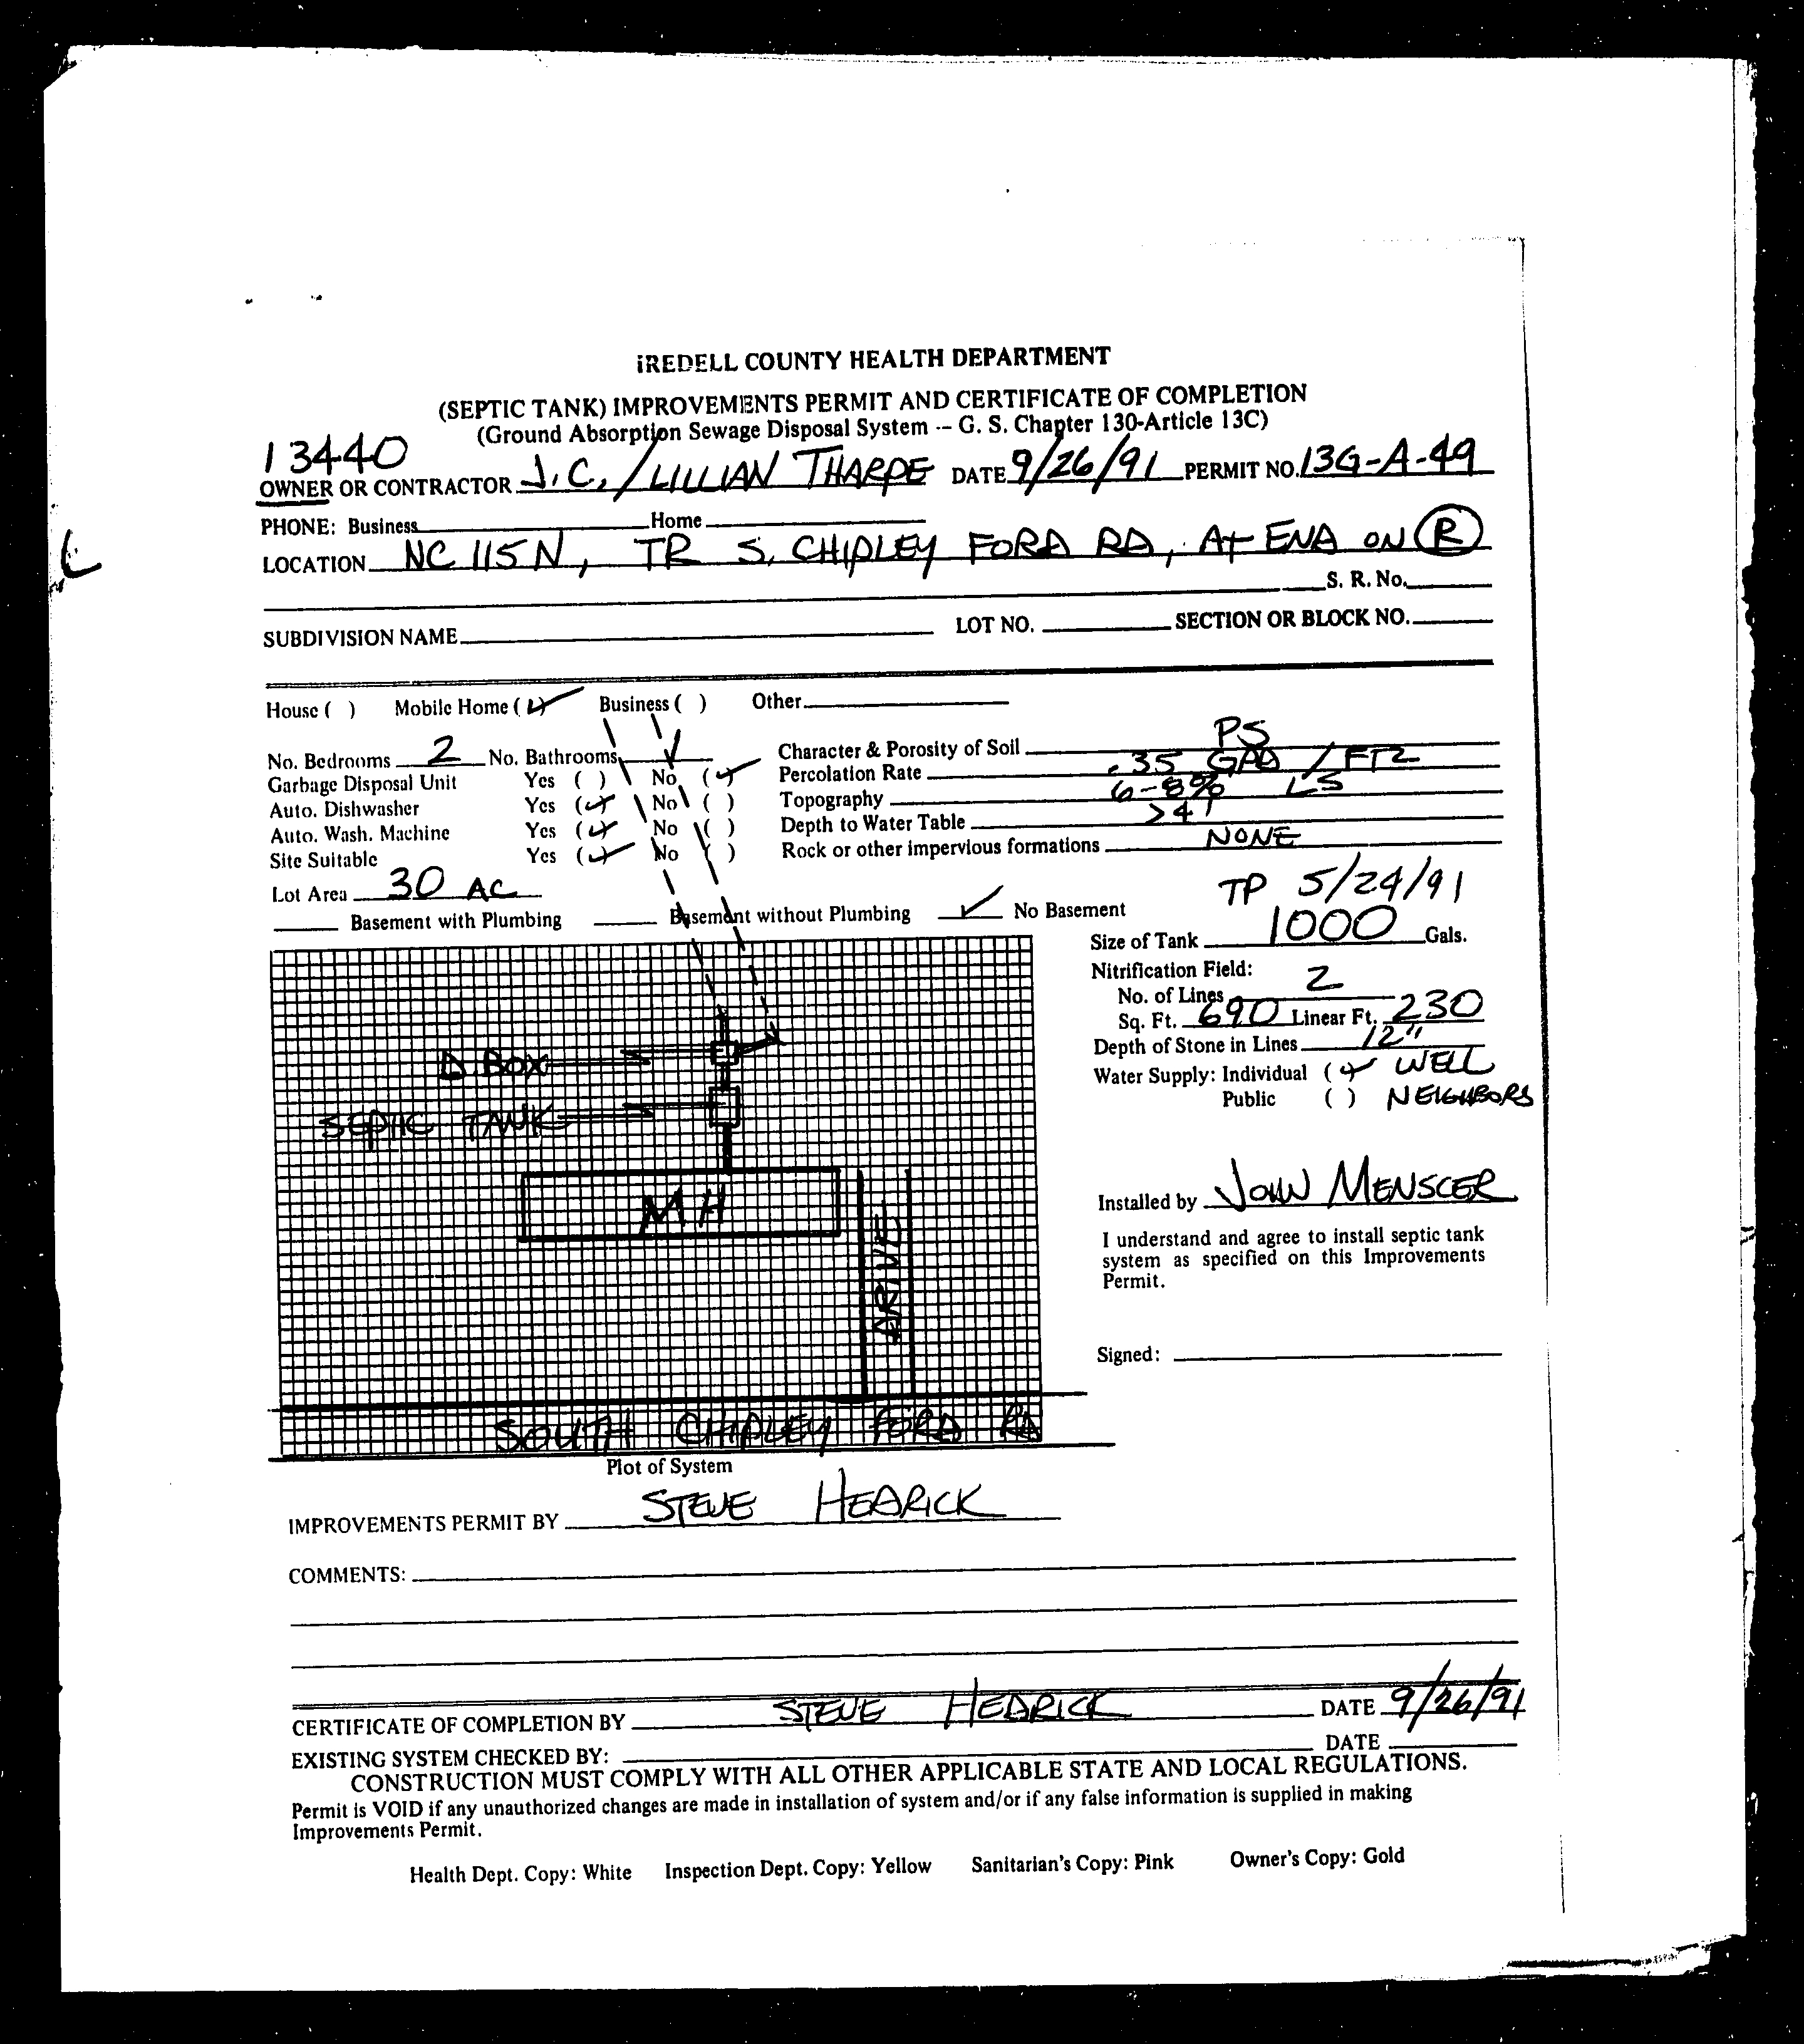 IREDELL COUNTY HEALTH DEPARTMENT
(SEPTIC TANK) IMPROVEMENTS PERMIT AND CERTIFICATE OF COMPLETION
(Ground Absorption Sewage Disposal System -- G. S. Chapter 130-Article 13C)
13440
OWNER OR CONTRACTOR J.C. / LILLIAN THARPE DATE 9/26/91 PERMIT NO. 13G-A-49
PHONE: Business Home
LOCATION NC 115 N, TR S. CHIPLEY FORD RD, At END ON R
S. R. No.
SUBDIVISION NAME LOT NO. SECTION OR BLOCK NO.
House ( ) Mobile Home (✓) Business ( ) Other
No. Bedrooms 2 No. Bathrooms Character & Porosity of Soil PS
Garbage Disposal Unit Yes ( ) No (✓) Percolation Rate .35 GPD / FT2
Auto. Dishwasher Yes (✓) No ( ) Topography 6-8% LS
Auto. Wash. Machine Yes (✓) No ( ) Depth to Water Table >4'
Site Suitable Yes (✓) No ( ) Rock or other impervious formations NONE
Lot Area 30 AC TP 5/24/91
Basement with Plumbing Basement without Plumbing ✓ No Basement
Size of Tank 1000 Gals.
Nitrification Field:
No. of Lines 2
Sq. Ft. 690 Linear Ft. 230
Depth of Stone in Lines 12"
Water Supply: Individual (✓) WELL
Public ( ) NEIGHBORS
D. BOX
SEPTIC TANK
MH
DRIVE
Installed by JOHN MENSCER
I understand and agree to install septic tank
system as specified on this Improvements
Permit.
Signed:
SOUTH CHIPLEY FORD RD
Plot of System
IMPROVEMENTS PERMIT BY STEVE HEDRICK
COMMENTS:
CERTIFICATE OF COMPLETION BY STEVE HEDRICK DATE 9/26/91
EXISTING SYSTEM CHECKED BY: DATE
CONSTRUCTION MUST COMPLY WITH ALL OTHER APPLICABLE STATE AND LOCAL REGULATIONS.
Permit is VOID if any unauthorized changes are made in installation of system and/or if any false information is supplied in making
Improvements Permit.
Health Dept. Copy: White Inspection Dept. Copy: Yellow Sanitarian's Copy: Pink Owner's Copy: Gold